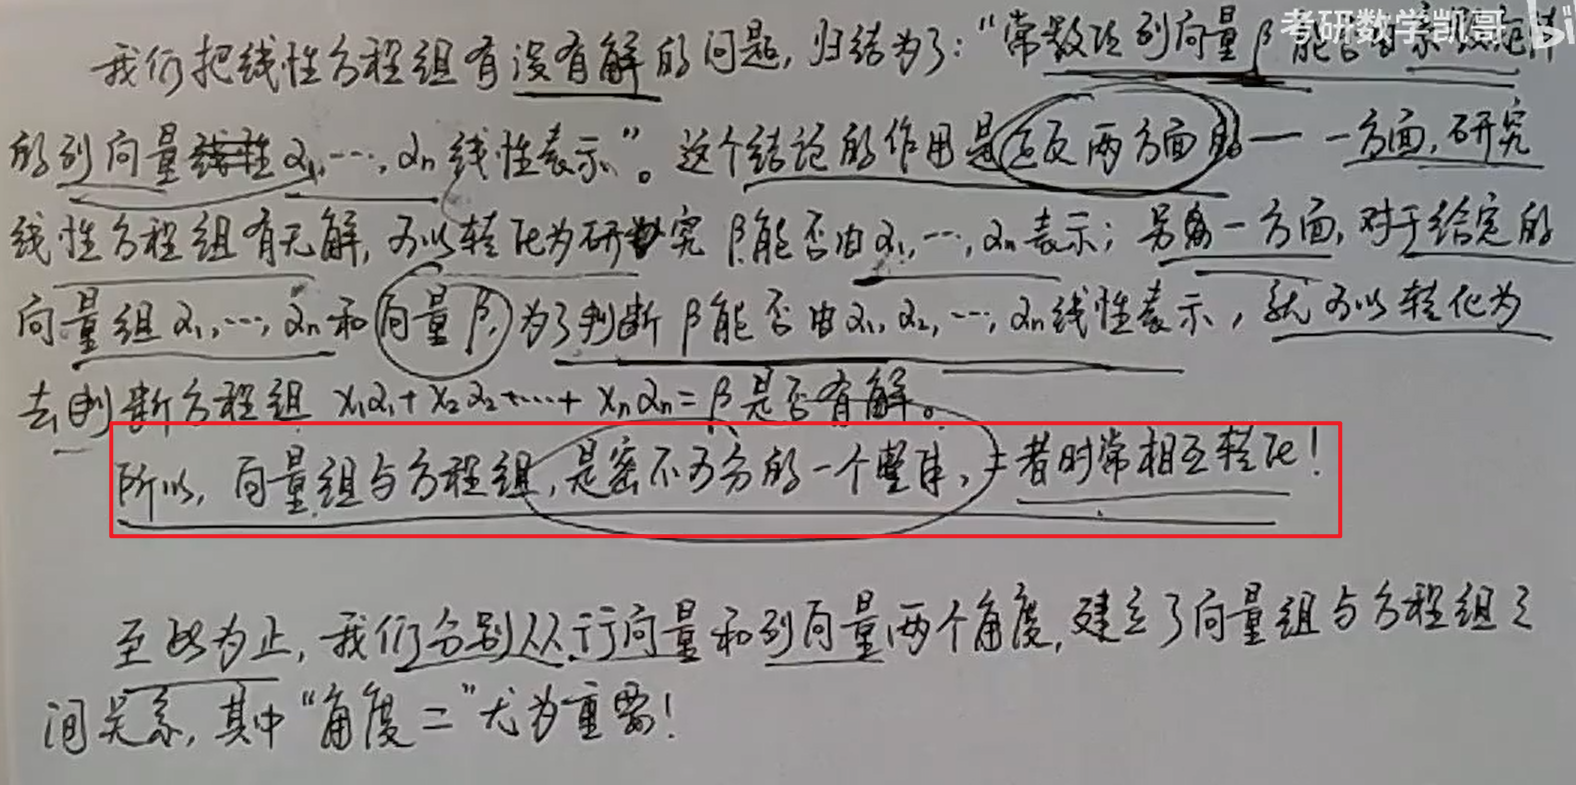 考研数学凯哥
我们把线性方程组有没有解的问题，归结为了：“常数项列向量β能否由系数矩阵
的列向量线性α₁,…,αn线性表示”。这个结论的作用是正反两方面的——一方面，研究
线性方程组有无解，可以转化为研究β能否由α₁,…,αn表示；另一方面，对于给定的
向量组α₁,…,αn和向量β，为了判断β能否由α₁,α₂,…,αn线性表示，就可以转化为
去判断方程组 x₁α₁+x₂α₂+…+xnαn=β是否有解。
所以，向量组与方程组，是密不可分的一个整体，二者时常相互转化！
至此为止，我们分别从行向量和列向量两个角度，建立了向量组与方程组之
间关系，其中“角度二”尤为重要！